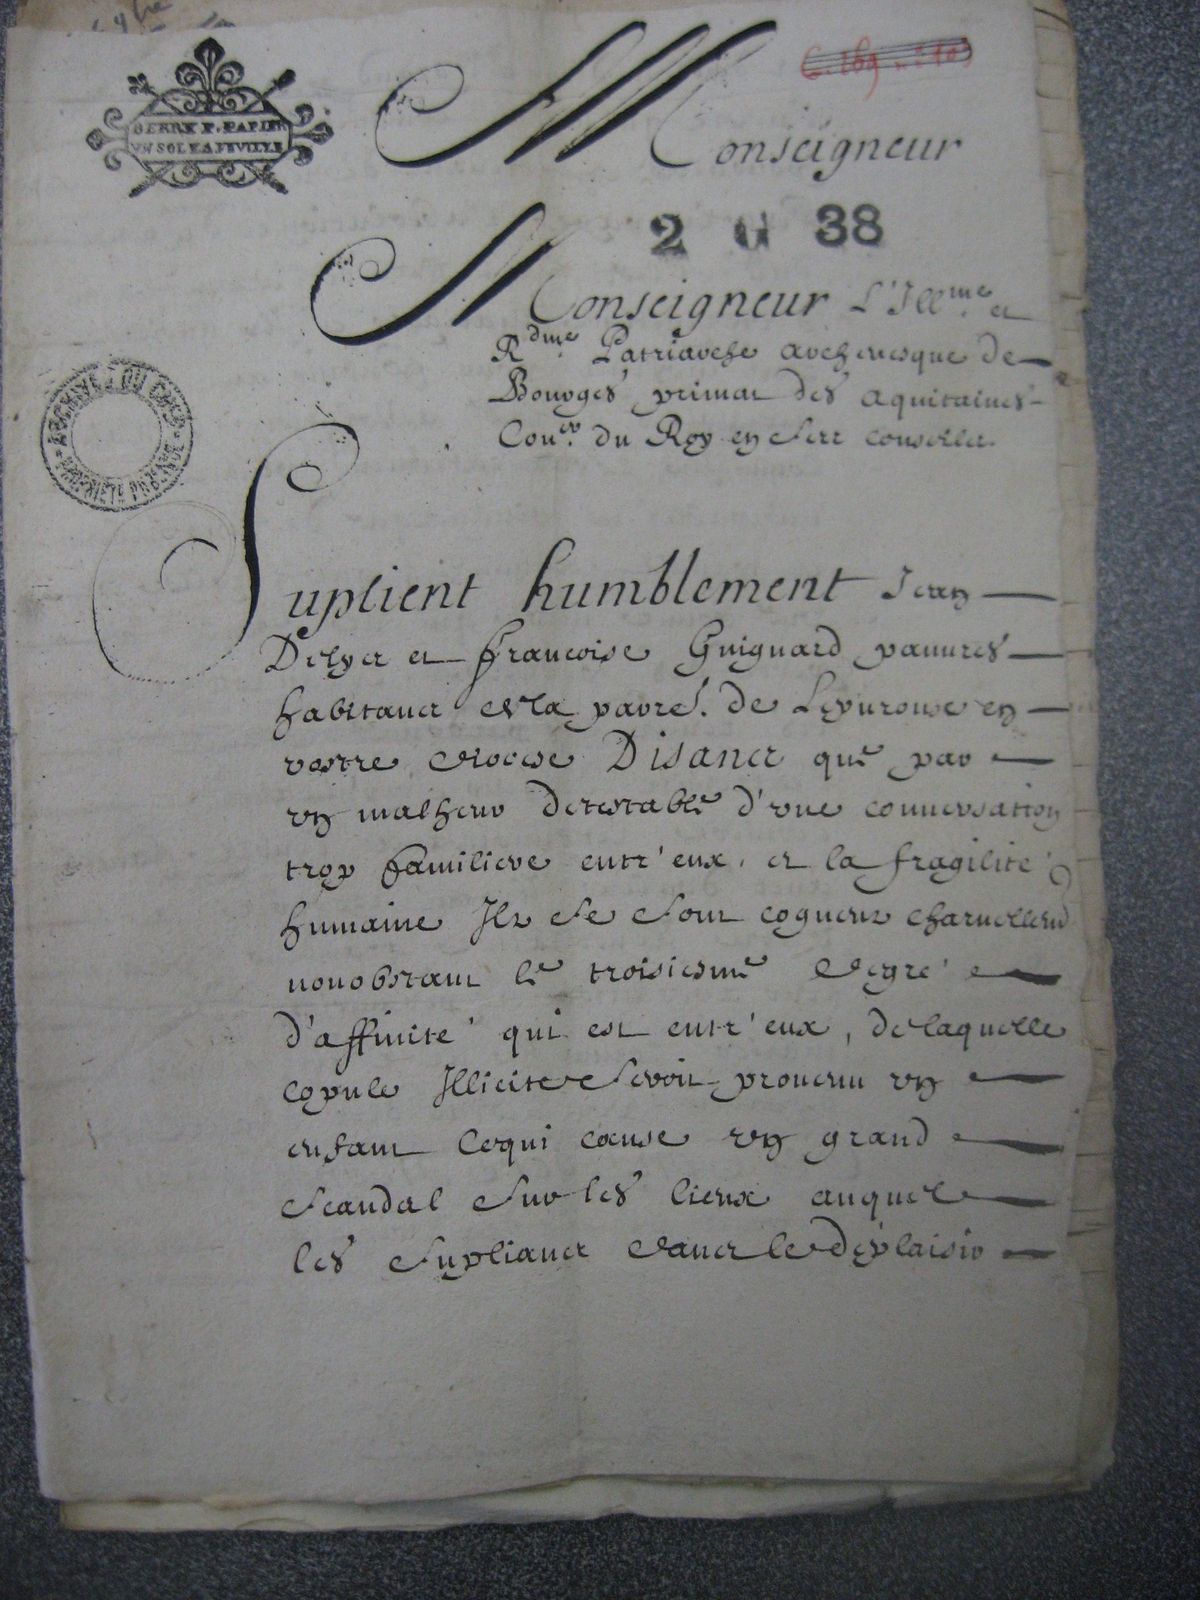 BERRY P. PAPIER
VN SOL LA FEVILLE
Monseigneur
2 G 38
Monseigneur L'Illme et
Rdme Patriarche archevesque de
Bourges primat des aquitaines
Coner du Roy en ses conseilles
ARCHIVES DU CHER
PROPRIÉTÉ PUBLIQUE
Suplient humblement Jean
Delyer et francoise Guignard pauures
habitantz de la parre. de Lepuroux en
vostre diocese Disantz que par
un malheur detestable d'vne conuersation
trop familiere entr'eux, et la fragilité
humaine Ilz se sont cogneuz charnellemt
nonobstant le troisiesme degré
d'affinité qui est entr'eux, de laquelle
copule Illicite seroit prouenu un
enfant Cequi cause un grand
scandal sur les lieux auquel
les supliantz dans le deplaisir